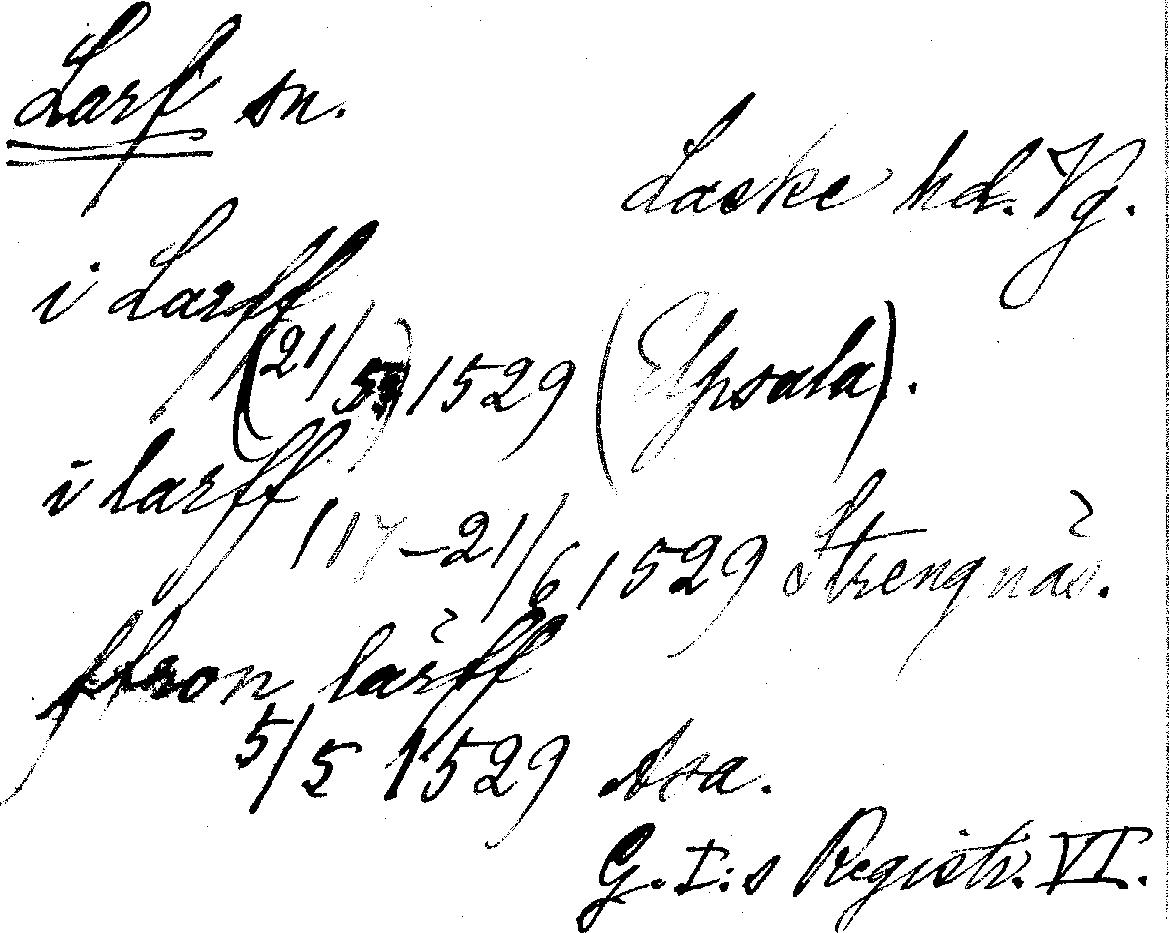 Larf sn.
Laske hd. Vg.
i Larff
(21/5) 1529 (Upsala).
i larff
17-21/6 1529 Strengnäs.
ffron lärff
5/5 1529 Asa.
G. I:s Registr. VI.